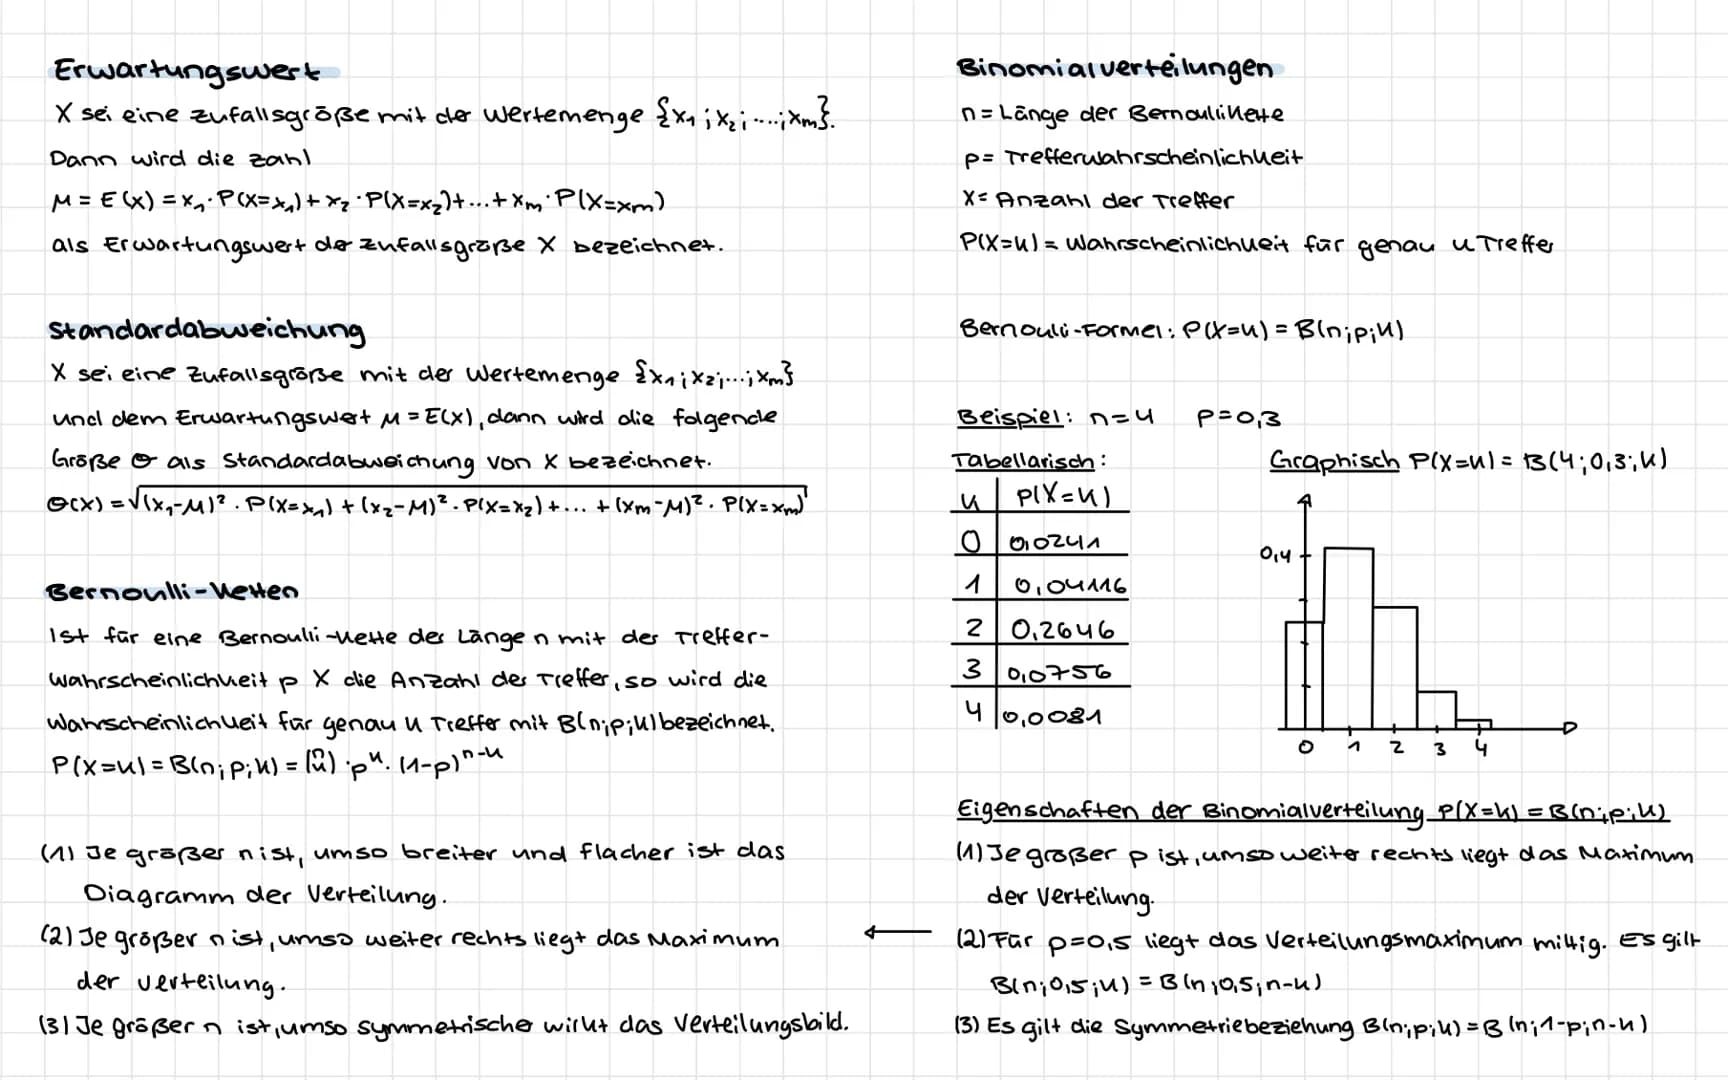 Erwartungswert
X sei eine Zufallsgröße mit der Wertemenge {x₁;x₂;...;xm}.
Dann wird die Zahl
μ = E(X) = x₁·P(X=x₁)+x₂·P(X=x₂)+...+xm·P(X=xm)
als Erwartungswert der Zufallsgröße X bezeichnet.
Standardabweichung
X sei eine Zufallsgröße mit der Wertemenge {x₁;x₂;...;xm}
und dem Erwartungswert μ = E(X), dann wird die folgende
Größe σ als Standardabweichung von X bezeichnet.
σ(X) = √(x₁-μ)²·P(X=x₁)+(x₂-μ)²·P(X=x₂)+...+(xm-μ)²·P(X=xm)
Bernoulli-Ketten
Ist für eine Bernoulli-Kette der Länge n mit der Treffer-
wahrscheinlichkeit p X die Anzahl der Treffer, so wird die
Wahrscheinlichkeit für genau k Treffer mit B(n;p;k) bezeichnet.
P(X=k) = B(n;p;k) = (n k)·p^k·(1-p)^n-k
(1) Je größer n ist, umso breiter und flacher ist das
Diagramm der Verteilung.
(2) Je größer n ist, umso weiter rechts liegt das Maximum
der Verteilung.
(3) Je größer n ist, umso symmetrischer wirkt das Verteilungsbild.
Binomialverteilungen
n = Länge der Bernoullikette
p = Trefferwahrscheinlichkeit
X = Anzahl der Treffer
P(X=k) = Wahrscheinlichkeit für genau k Treffer
Bernoulli-Formel: P(X=k) = B(n;p;k)
Beispiel: n=4 p=0,3
Tabellarisch:
k P(X=k)
0 0,0241
1 0,04116
2 0,2646
3 0,0756
4 0,0081
Graphisch P(X=k) = B(4;0,3;k)
0,4
0 1 2 3 4
Eigenschaften der Binomialverteilung P(X=k) = B(n;p;k)
(1) Je großer p ist, umso weiter rechts liegt das Maximum
der Verteilung.
← (2) Für p=0,5 liegt das Verteilungsmaximum mittig. Es gilt
B(n;0,5;k) = B(n;0,5;n-k)
(3) Es gilt die Symmetriebeziehung B(n;p;k) = B(n;1-p;n-k)